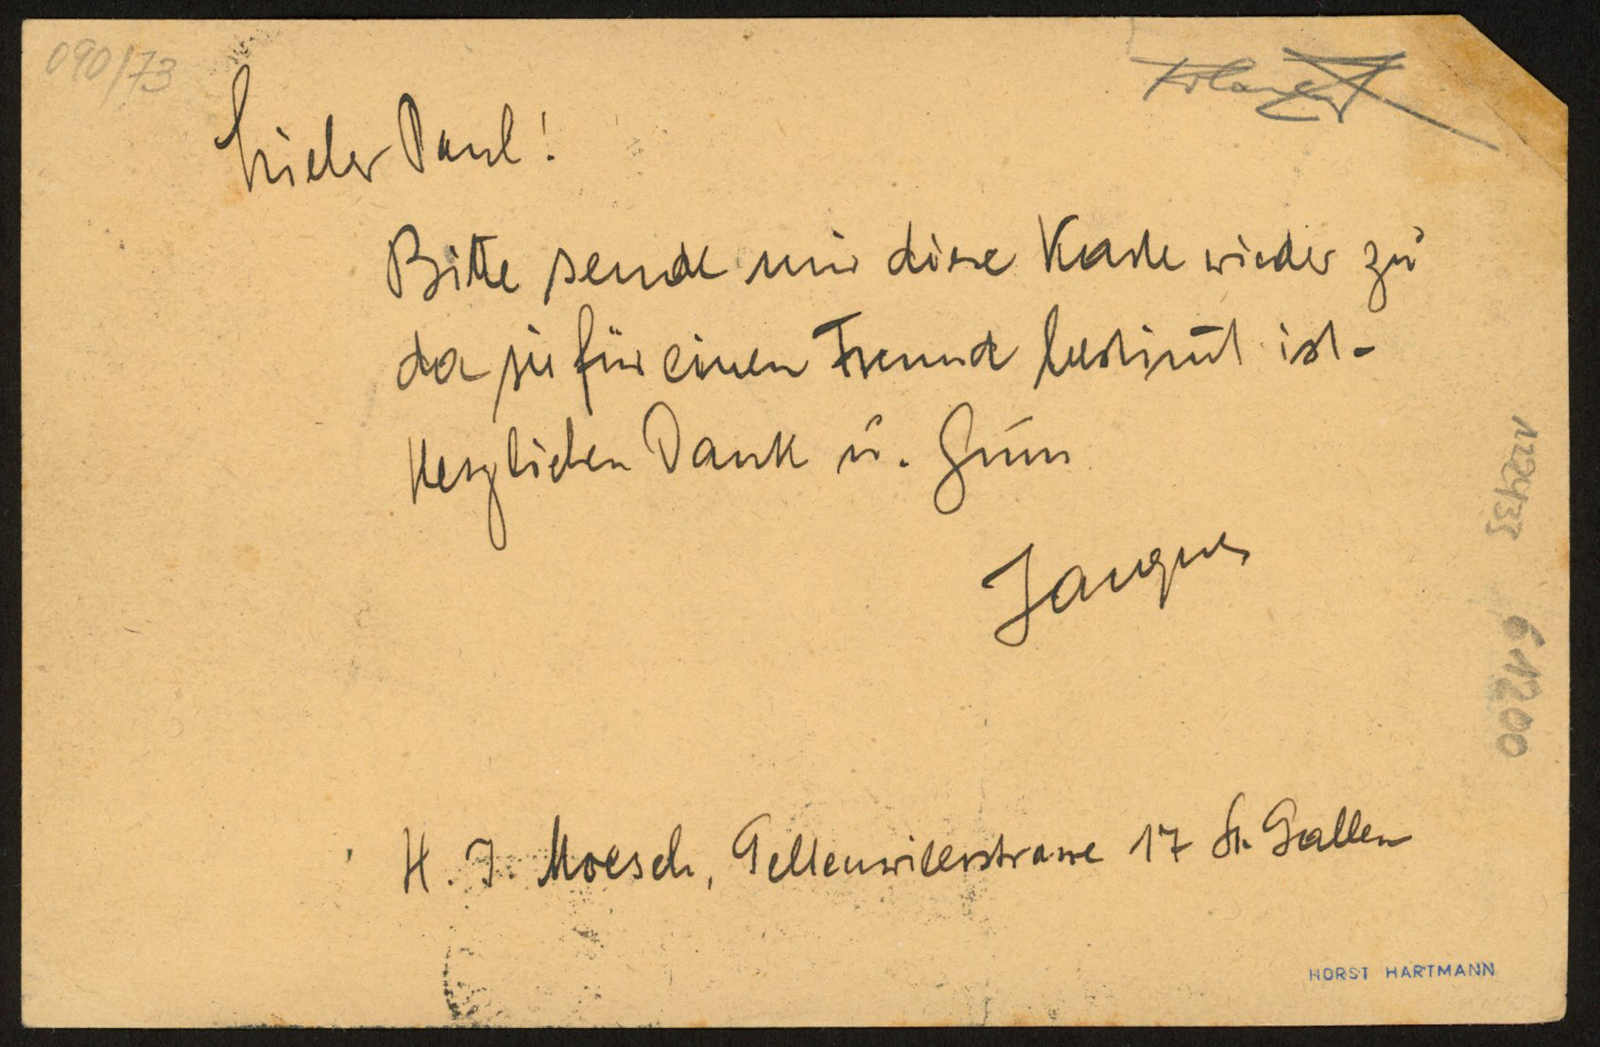 090/73
Lieber Paul!
Bitte sende mir diese Karte wieder zu
da sie für einen Freund bestimt ist-
Herzlichen Dank u. Gruss
Jacques
H. J. Moesch, Tellenwilerstrasse 17 St. Gallen
HORST HARTMANN
61200